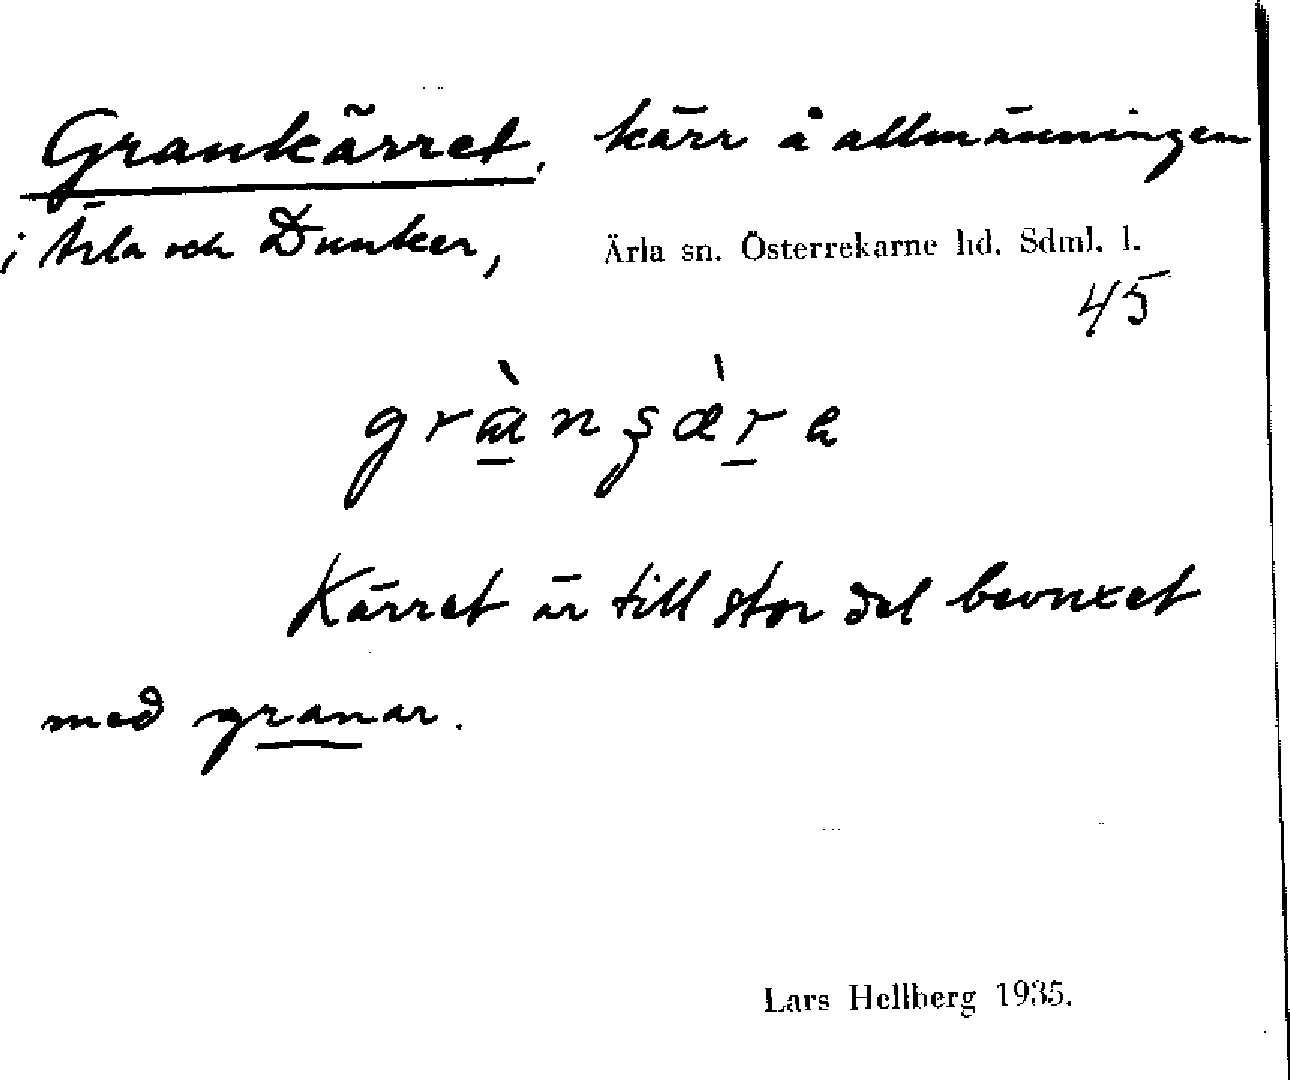 Grankärret, kärr å allmänningen
i Ärla och Dunker, Ärla sn. Österrekarne hd. Sdml. l.
45
Kärret är till stor del bevuxet
med granar.
Lars Hellberg 1935.